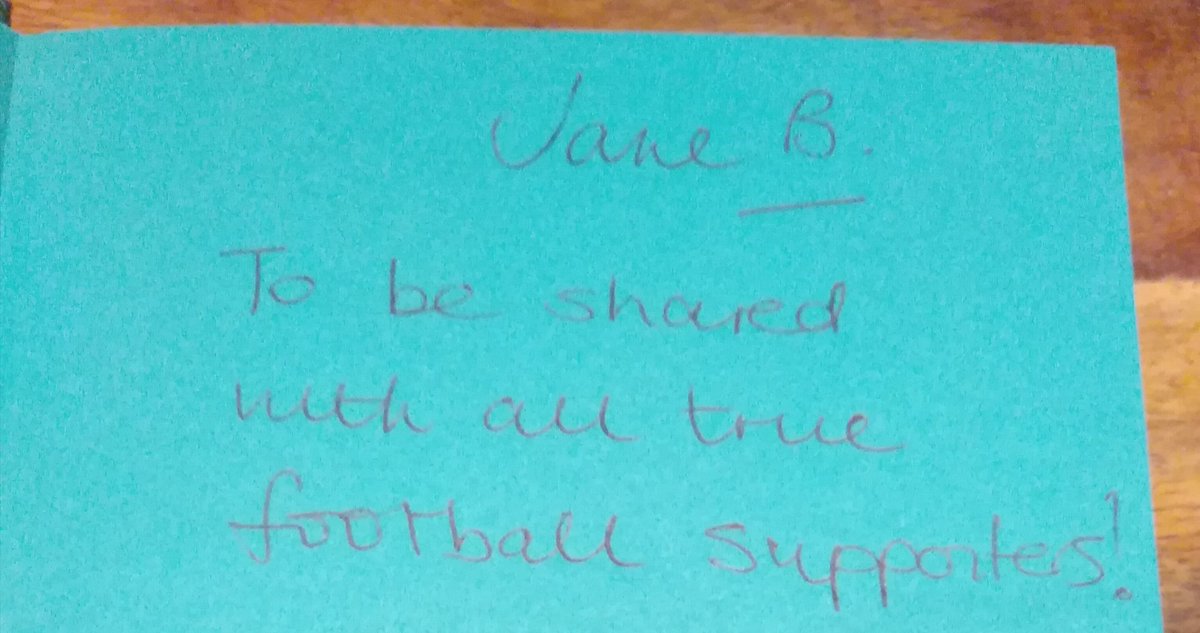 Jane B.
To be shared
with all true
football supporters!